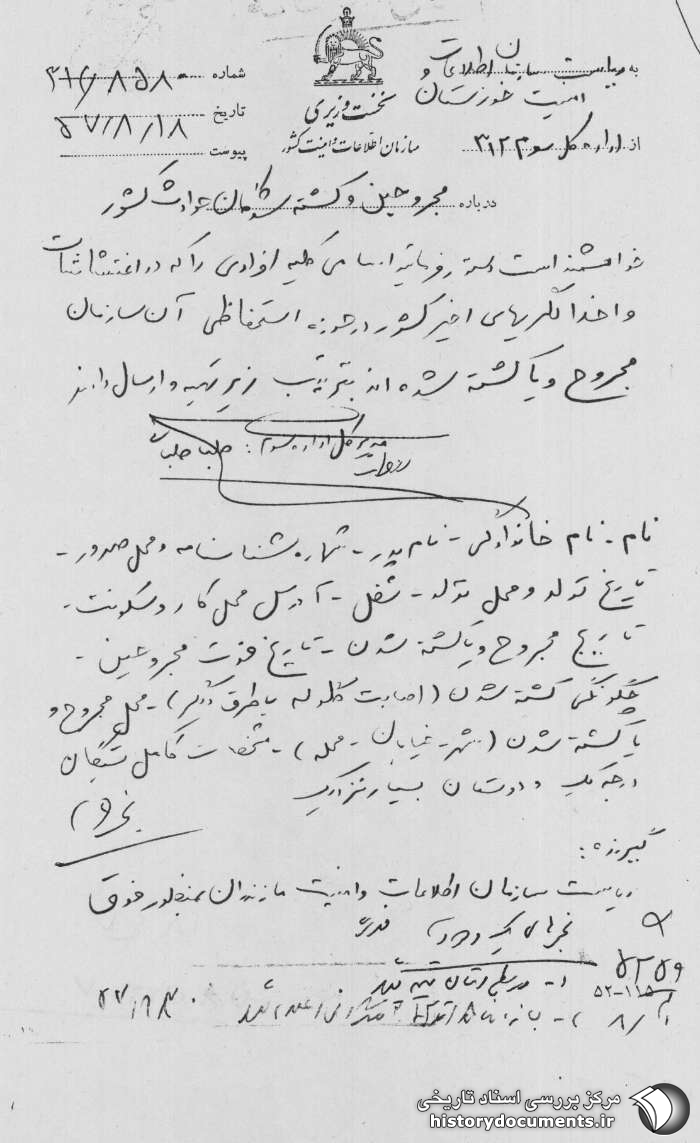 به ریاست سازمان اطلاعات و
امنیت خوزستان
از اداره کل سوم ۳۱۲
نخست وزیری
سازمان اطلاعات و امنیت کشور
شماره ۳۱۲/۸۵۸۰
تاریخ ۵۷/۸/۱۸
پیوست
درباره مجروحین و کشته شدگان حوادث کشور
خواهشمند است دستور فرمائید اسامی کلیه افرادی را که در اغتشاشات
و اخلالگریهای اخیر کشور در حوزه استحفاظی آن سازمان
مجروح و یا کشته شده اند بترتیب زیر تهیه و ارسال دارند
مدیر کل اداره سوم :
نام - نام خانوادگی - نام پدر - شماره شناسنامه و محل صدور -
تاریخ تولد و محل تولد - شغل - آدرس محل کار و سکونت -
تاریخ مجروح و یا کشته شدن - تاریخ فوت مجروحین -
چگونگی کشته شدن (اصابت گلوله یا طرق دیگر) - محل مجروح و
یا کشته شدن (شهر - خیابان - محله) - مشخصات کامل بستگان
درجه یک و دوستان بسیار نزدیک
گیرنده :
ریاست سازمان اطلاعات و امنیت مازندران بمنظور فوق
مرکز بررسی اسناد تاریخی
historydocuments.ir